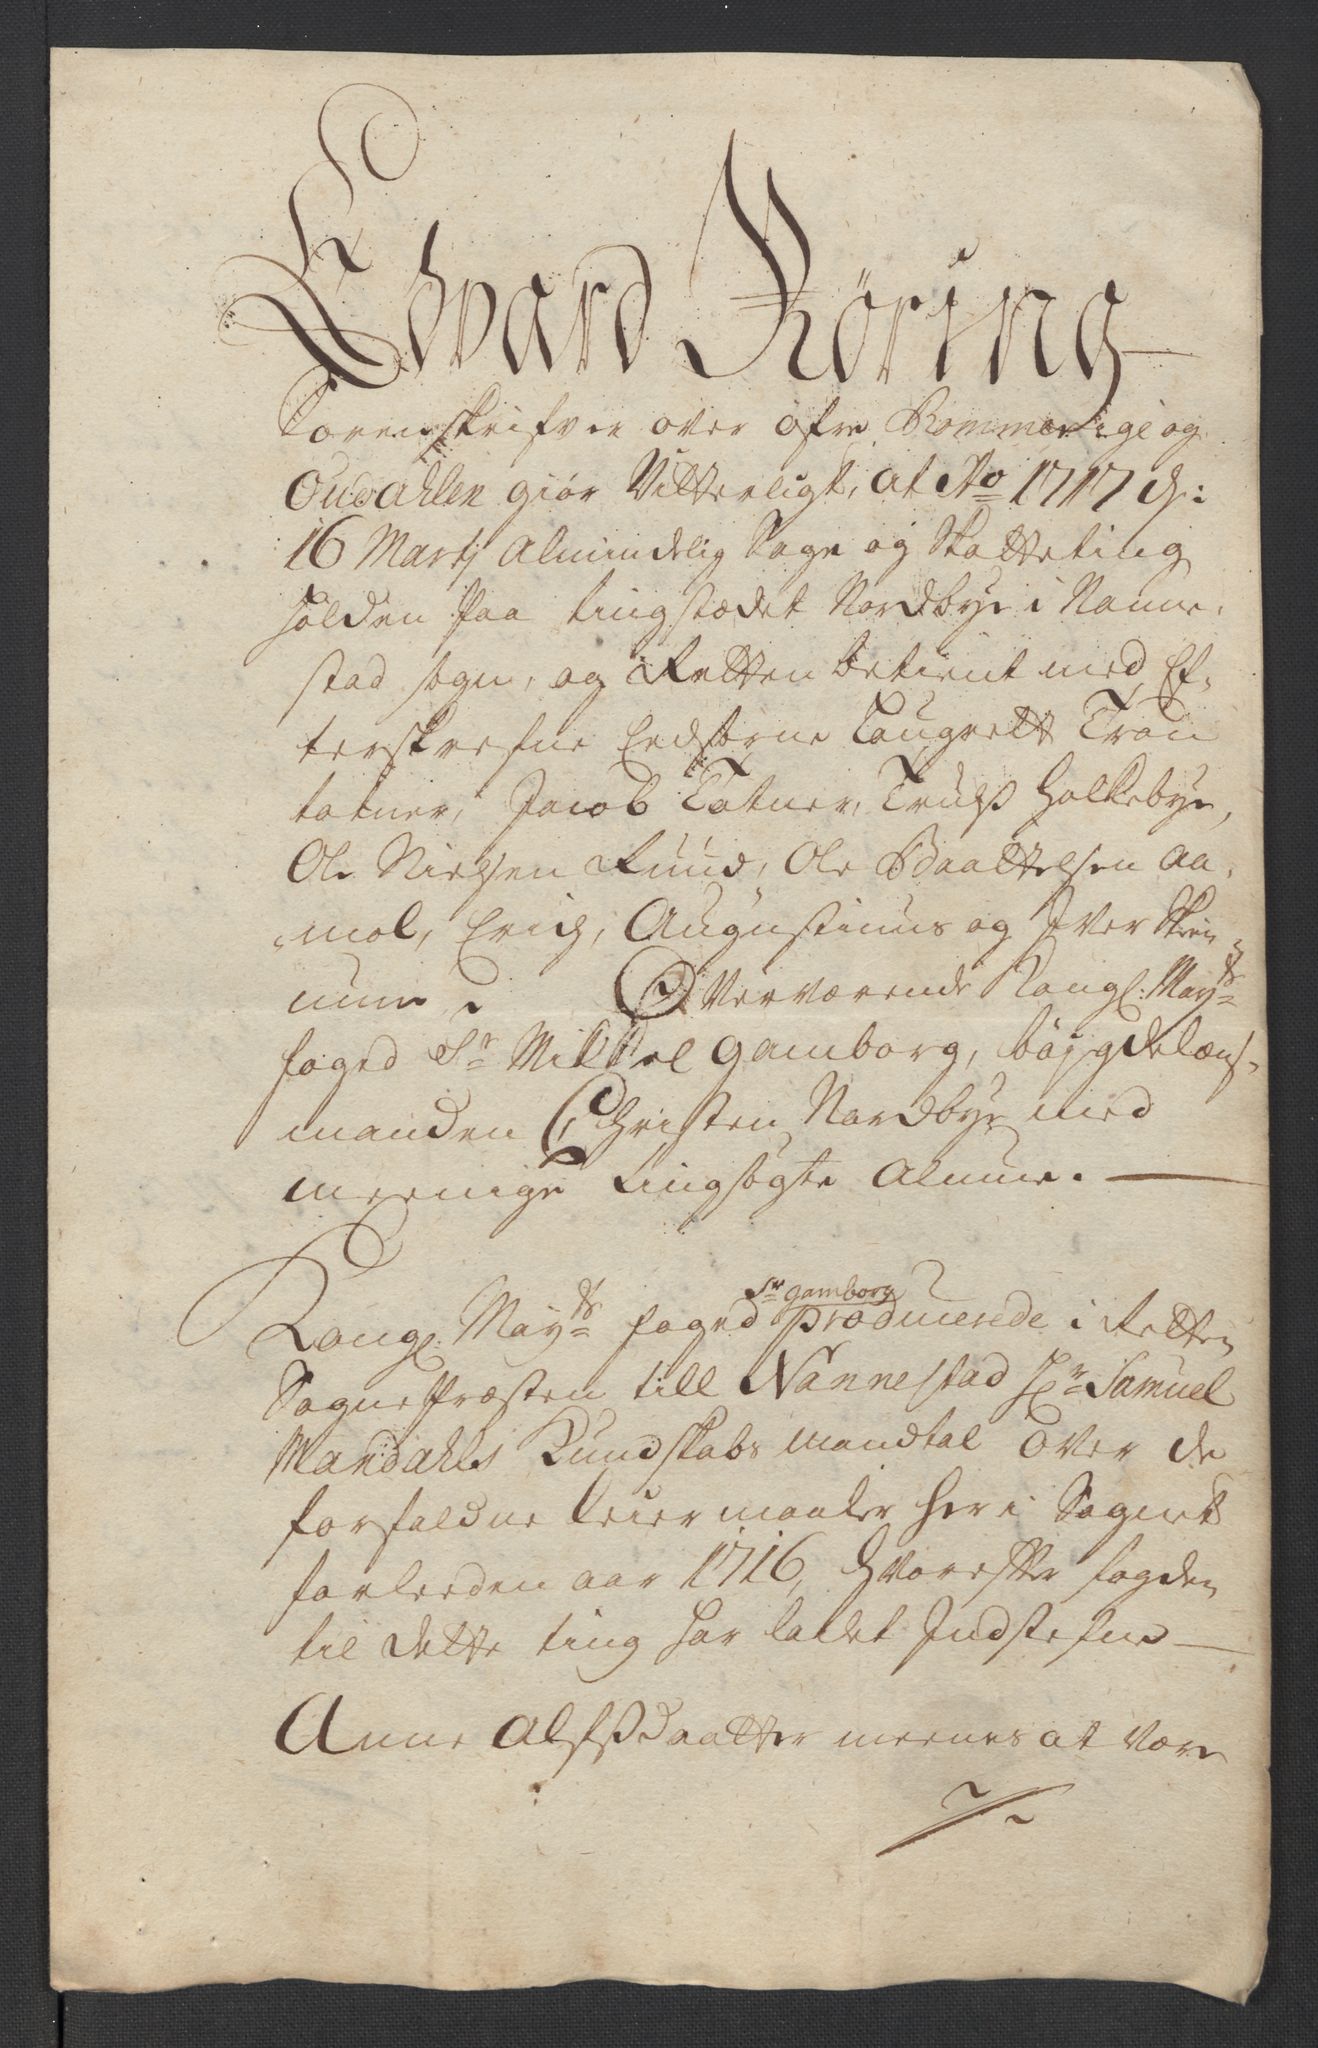 Edvard Røring
Sorenskrifver over øfre Rommerige og
Oudahlen giør Vitterligt, at Ao 1717 d:
16 Martj Almindelig Sage og Skatteting
holden paa tingstædet Nordbye i Nanne,
stad sogn, og Retten betient med Ef,
terskrefne Eedsorne Laugrett Tron
tatner, Jacob Tatner, Trulß Holkebye,
Ole Nielsen Ruud, Ole Baattelsen Aa,
mol, Erich, Augustinus og Iver
Overværende Kongl: Mayts
foged Sr Mikkel Gamborg, bøygdelens,
manden Christen Nordbye med
meenige tingsøgte Almue.
Kongl. Mayts foged Sr Gamborg producerede i Retten
Sognepræsten till Nannestad Hr Samuel
Mandahls Kundskabs Mandtal over de
forfaldne leiermaaler her i Sognet
forleeden aar 1716, hvorefter fogden
til dette ting har ladet Indstefne
Anne Alfßdaatter meenes at være